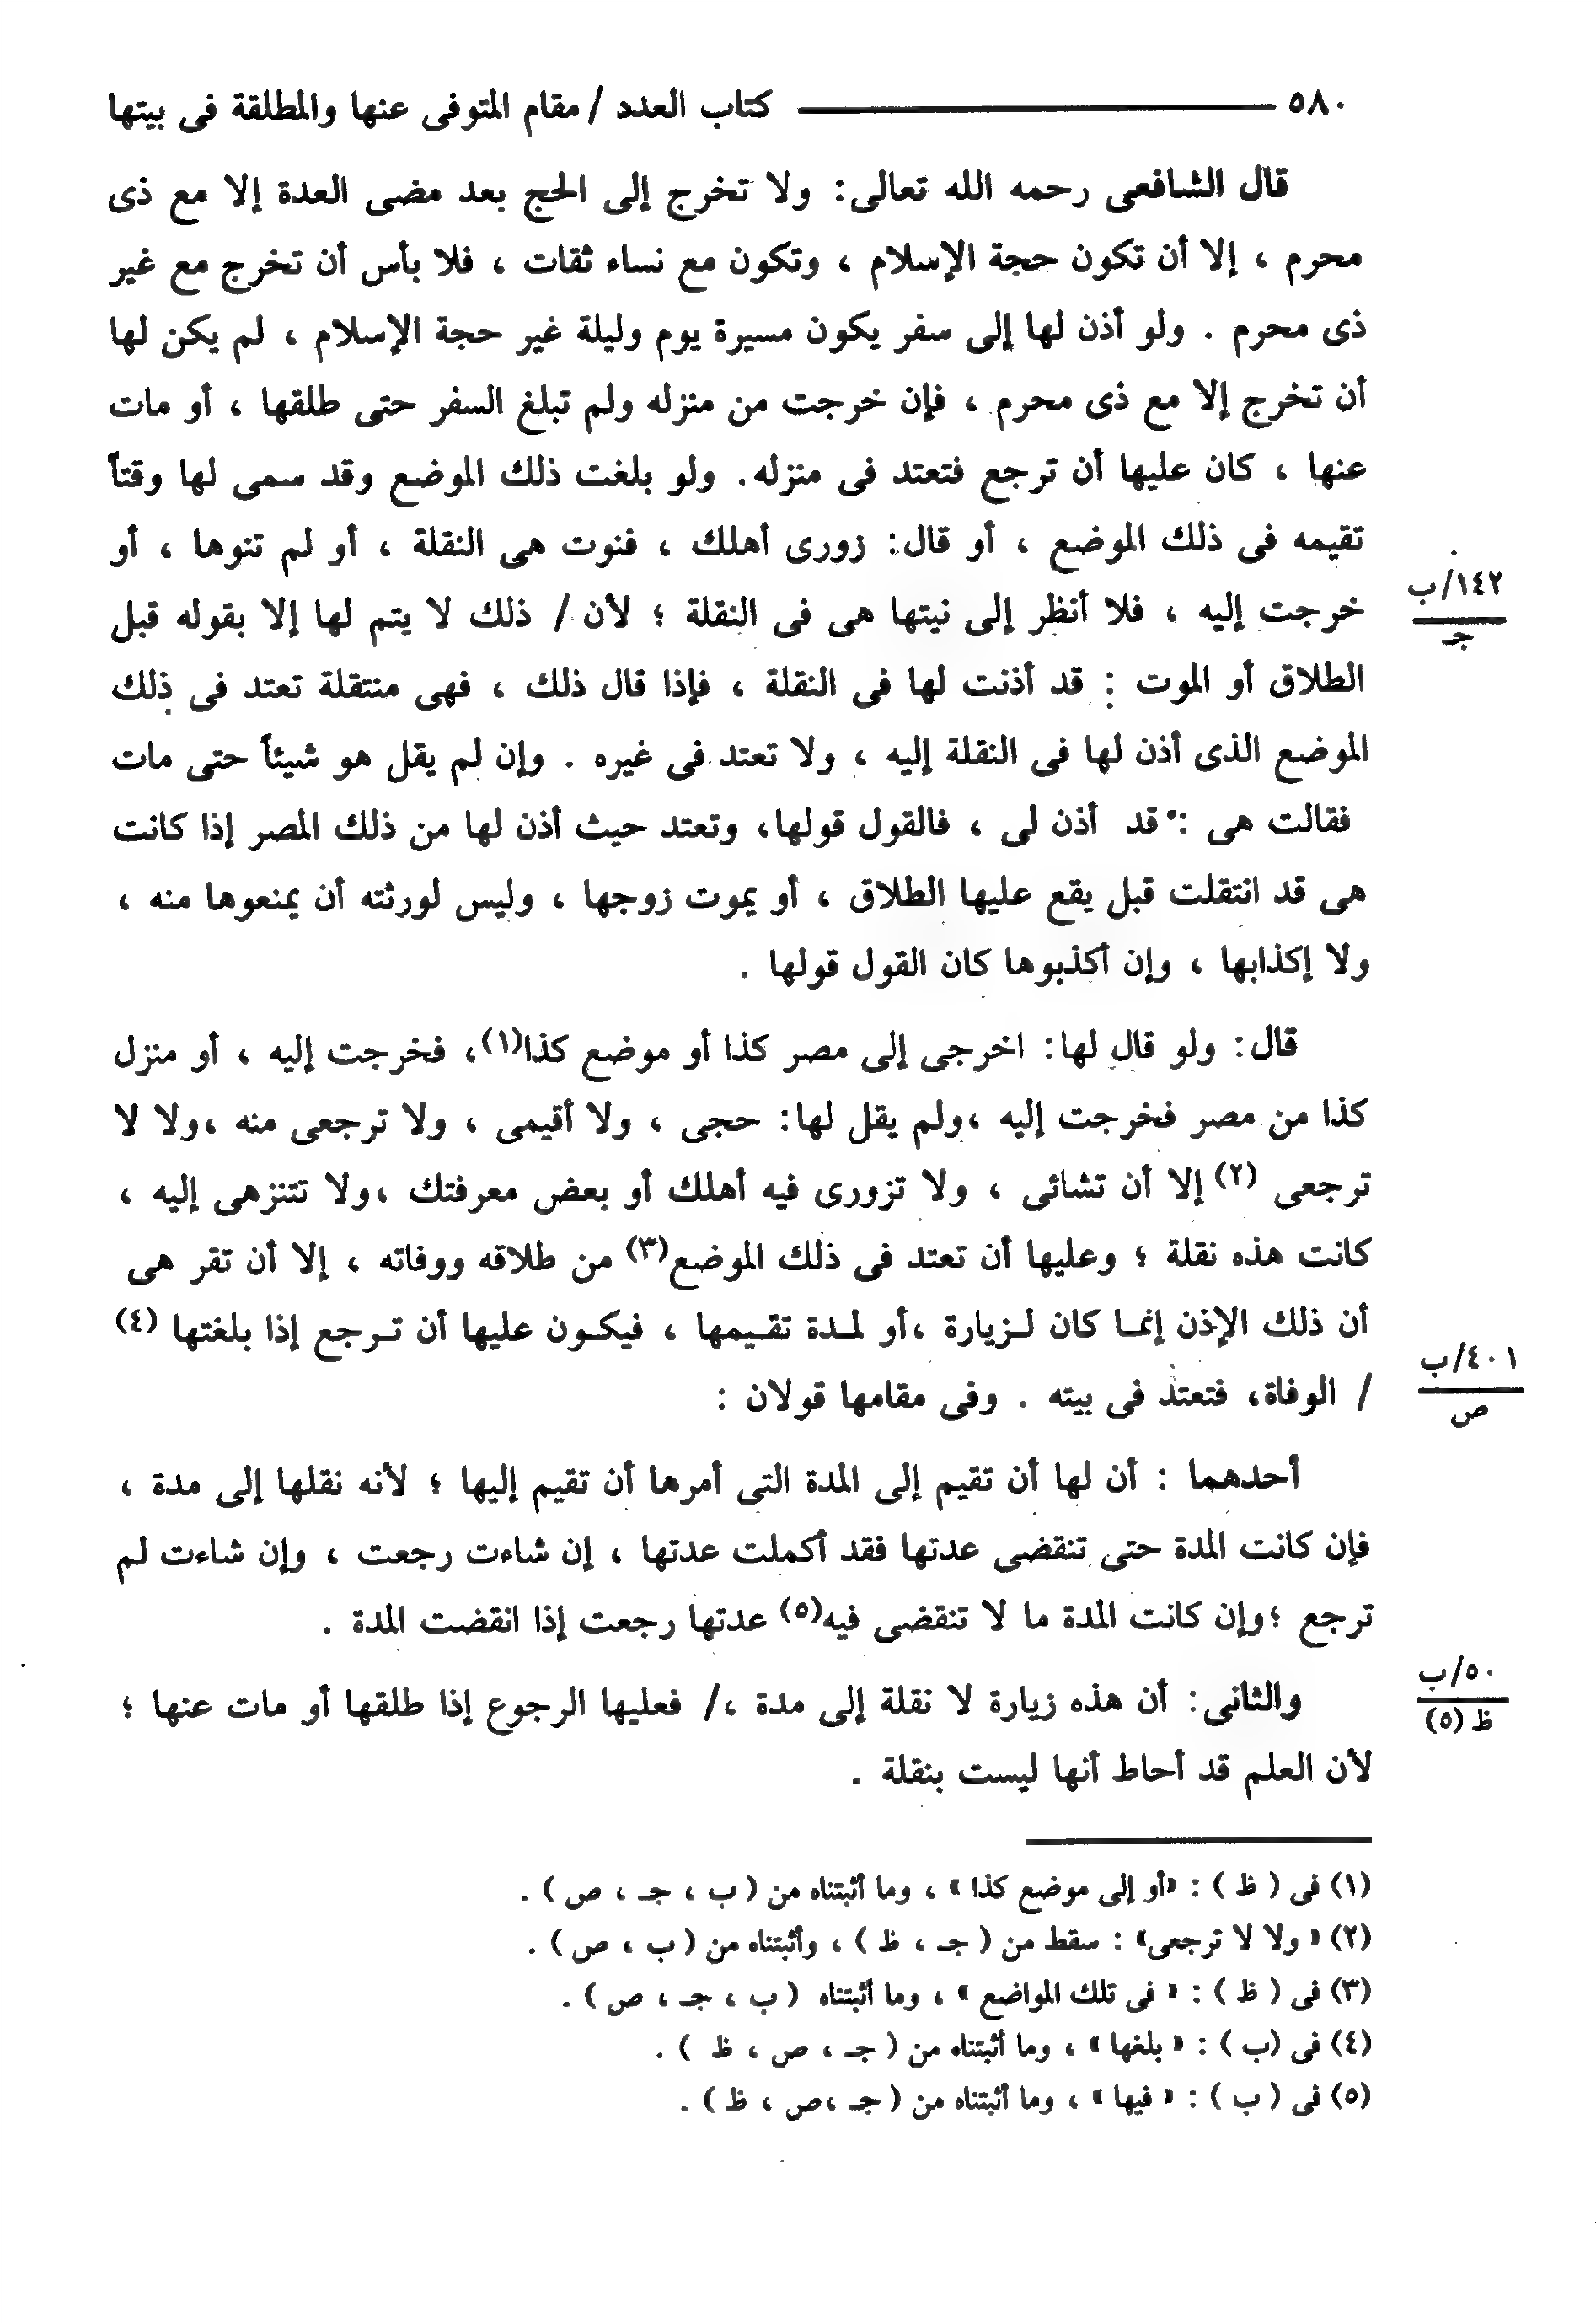 ٥٨٠ كتاب العدد / مقام المتوفى عنها والمطلقة فى بيتها
قال الشافعى رحمه الله تعالى: ولا تخرج إلى الحج بعد مضى العدة إلا مع ذى
محرم ، إلا أن تكون حجة الإسلام ، وتكون مع نساء ثقات ، فلا بأس أن تخرج مع غير
ذى محرم . ولو أذن لها إلى سفر يكون مسيرة يوم وليلة غير حجة الإسلام ، لم يكن لها
أن تخرج إلا مع ذى محرم ، فإن خرجت من منزله ولم تبلغ السفر حتى طلقها ، أو مات
عنها ، كان عليها أن ترجع فتعتد فى منزله. ولو بلغت ذلك الموضع وقد سمى لها وقتاً
تقيمه فى ذلك الموضع ، أو قال: زورى أهلك ، فنوت هى النقلة ، أو لم تنوها ، أو
١٤٢/ب
جـ
خرجت إليه ، فلا أنظر إلى نيتها هى فى النقلة ؛ لأن / ذلك لا يتم لها إلا بقوله قبل
الطلاق أو الموت : قد أذنت لها فى النقلة ، فإذا قال ذلك ، فهى منتقلة تعتد فى ذلك
الموضع الذى أذن لها فى النقلة إليه ، ولا تعتد فى غيره . وإن لم يقل هو شيئاً حتى مات
فقالت هى : قد أذن لى ، فالقول قولها، وتعتد حيث أذن لها من ذلك المصر إذا كانت
هى قد انتقلت قبل يقع عليها الطلاق ، أو يموت زوجها ، وليس لورثته أن يمنعوها منه ،
ولا إكذابها ، وإن أكذبوها كان القول قولها .
قال: ولو قال لها: اخرجى إلى مصر كذا أو موضع كذا(١)، فخرجت إليه ، أو منزل
كذا من مصر فخرجت إليه ،ولم يقل لها: حجى ، ولا أقيمى ، ولا ترجعى منه ،ولا لا
ترجعى (٢) إلا أن تشائى ، ولا تزورى فيه أهلك أو بعض معرفتك ،ولا تتنزهى إليه ،
كانت هذه نقلة ؛ وعليها أن تعتد فى ذلك الموضع(٣) من طلاقه ووفاته ، إلا أن تقر هى
أن ذلك الإذن إنما كان لزيارة ،أو لمدة تقيمها ، فيكون عليها أن ترجع إذا بلغتها (٤)
٤٠١/ب
ص
/ الوفاة، فتعتد فى بيته . وفى مقامها قولان :
أحدهما : أن لها أن تقيم إلى المدة التى أمرها أن تقيم إليها ؛ لأنه نقلها إلى مدة ،
فإن كانت المدة حتى تنقضى عدتها فقد أكملت عدتها ، إن شاءت رجعت ، وإن شاءت لم
ترجع ؛وإن كانت المدة ما لا تنقضى فيه(٥) عدتها رجعت إذا انقضت المدة .
٥٠/ب
ظ (٥)
والثانى: أن هذه زيارة لا نقلة إلى مدة ،/ فعليها الرجوع إذا طلقها أو مات عنها ؛
لأن العلم قد أحاط أنها ليست بنقلة .
(١) فى ( ظ ) : «أو إلى موضع كذا » ، وما أثبتناه من ( ب ، جـ ، ص ) .
(٢) « ولا لا ترجعى» : سقط من ( جـ ، ظ ) ، وأثبتناه من ( ب ، ص ) .
(٣) فى ( ظ ) : « فى تلك المواضع » ، وما أثبتناه ( ب ، جـ ، ص ) .
(٤) فى (ب ) : « بلغها » ، وما أثبتناه من ( جـ ، ص ، ظ ) .
(٥) فى ( ب ) : « فيها » ، وما أثبتناه من ( جـ ،ص ، ظ ) .